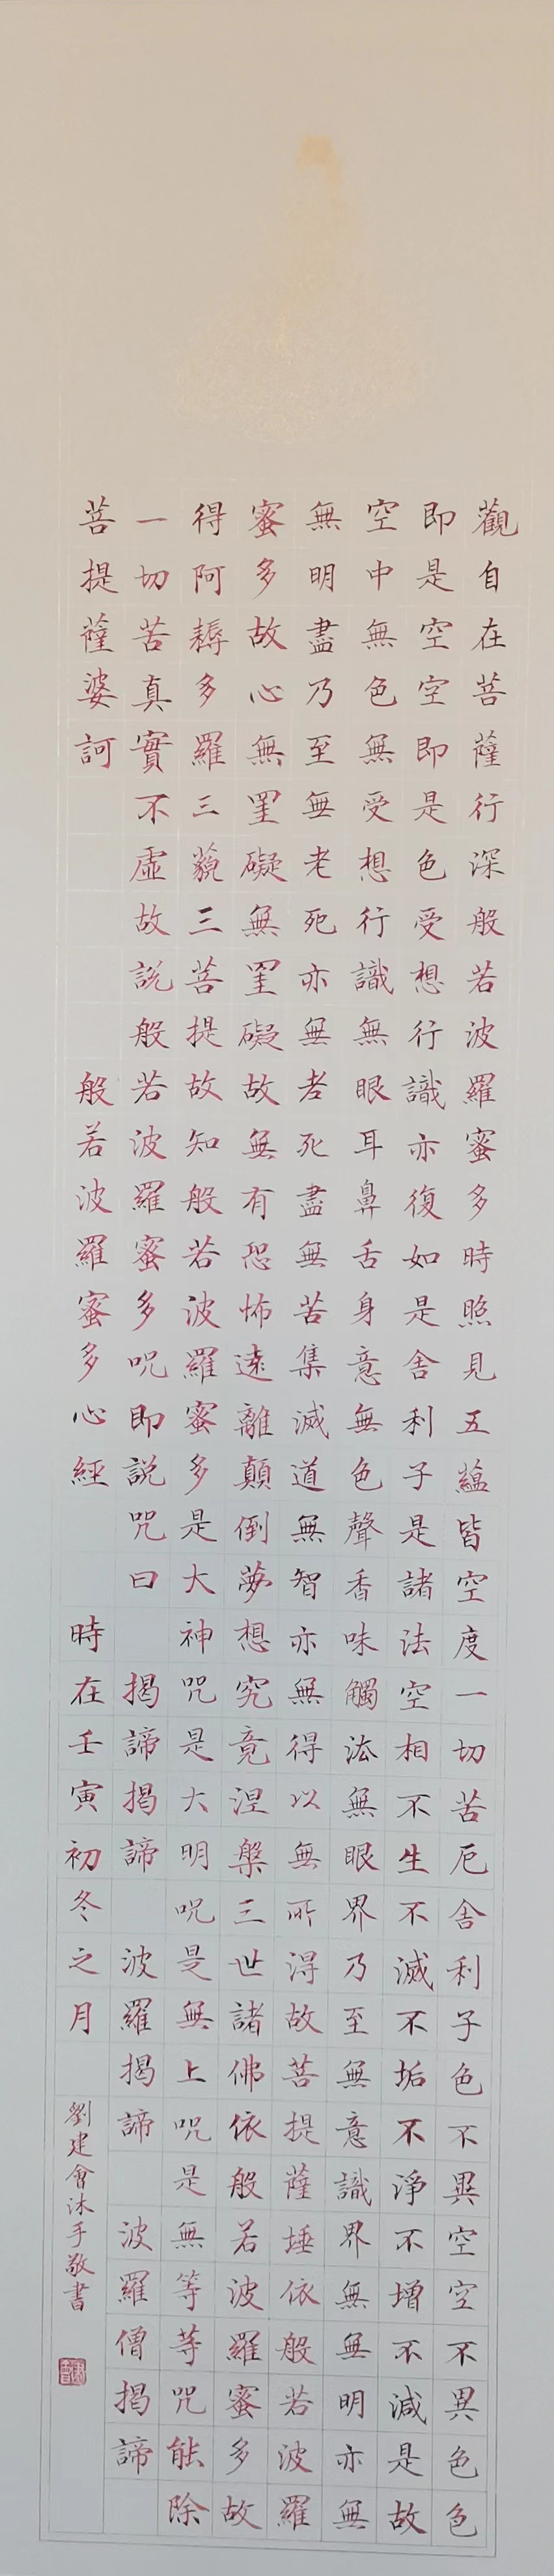 觀自在菩薩行深般若波羅蜜多時照見五蘊皆空度一切苦厄舍利子色不異空空不異色色
即是空空即是色受想行識亦復如是舍利子是諸法空相不生不滅不垢不淨不增不減是故
空中無色無受想行識無眼耳鼻舌身意無色聲香味觸法無眼界乃至無意識界無無明亦無
無明盡乃至無老死亦無老死盡無苦集滅道無智亦無得以無所得故菩提薩埵依般若波羅
蜜多故心無罣礙無罣礙故無有恐怖遠離顛倒夢想究竟涅槃三世諸佛依般若波羅蜜多故
得阿耨多羅三藐三菩提故知般若波羅蜜多是大神咒是大明咒是無上咒是無等等咒能除
一切苦真實不虛故說般若波羅蜜多咒即說咒曰 揭諦揭諦 波羅揭諦 波羅僧揭諦
菩提薩婆訶 般若波羅蜜多心經 時在壬寅初冬之月 劉建會沐手敬書